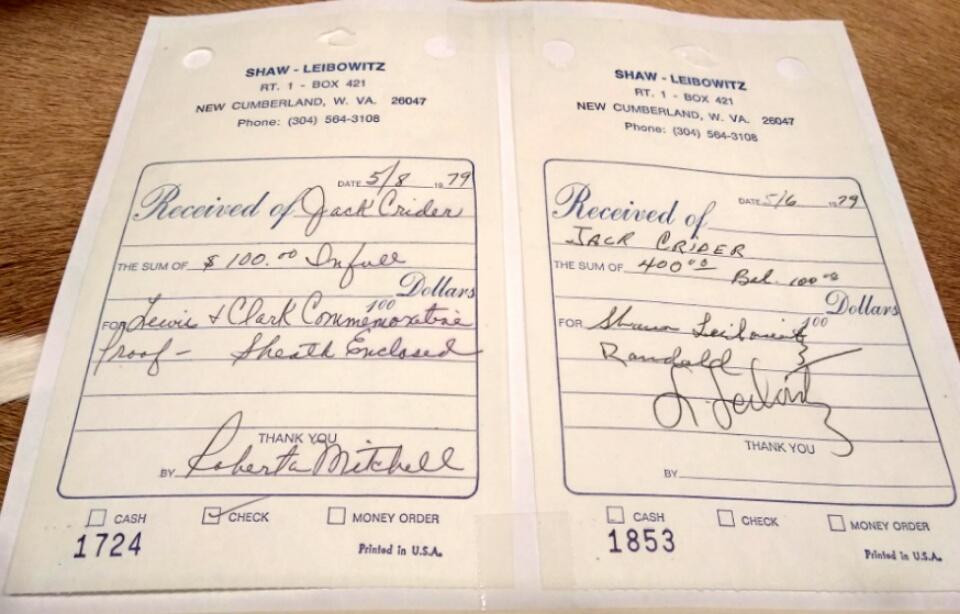 SHAW - LEIBOWITZ
RT. 1 - BOX 421
NEW CUMBERLAND, W. VA. 26047
Phone: (304) 564-3108
DATE 5/8 1979
Received of Jack Crider
THE SUM OF $100.00 In full
Dollars
100
FOR Lewis & Clark Commemorative
Proof - Sheath Enclosed
THANK YOU
BY Roberta Mitchell
CASH CHECK MONEY ORDER
1724 Printed in U.S.A.
SHAW - LEIBOWITZ
RT. 1 - BOX 421
NEW CUMBERLAND, W. VA. 26047
Phone: (304) 564-3108
DATE 5/6 1979
Received of
JACK CRIDER
THE SUM OF 400.00 Bal. 100.00
Dollars
100
FOR Leibowitz
Randall
THANK YOU
BY
CASH CHECK MONEY ORDER
1853 Printed in U.S.A.